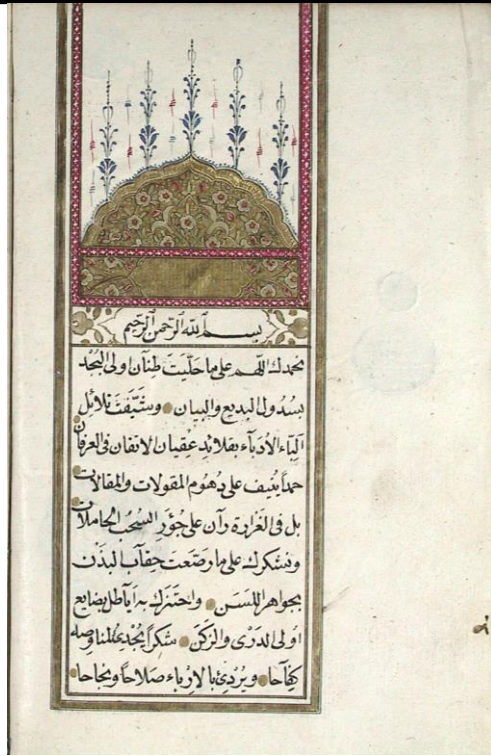 بسم الله الرحمن الرحيم
نحمدك اللهم على ما حلّيت اولى البجد
بسدول البديع والبيان وشنّفت
الباء الأدباء بقلائد عقيان الاتقان فى العرفان
حمداً ينيف على دهوم المقولات والمقالات
بل فى الغزارة وآن على جؤر السحب الحاملات
ونشكرك على ما رصّعت حقآب البدن
بجواهر اللسن به آياطل بضايع
اولى الدرى والزكن شكراً
كفآحا بالارباء صلاحاً ونجاحا